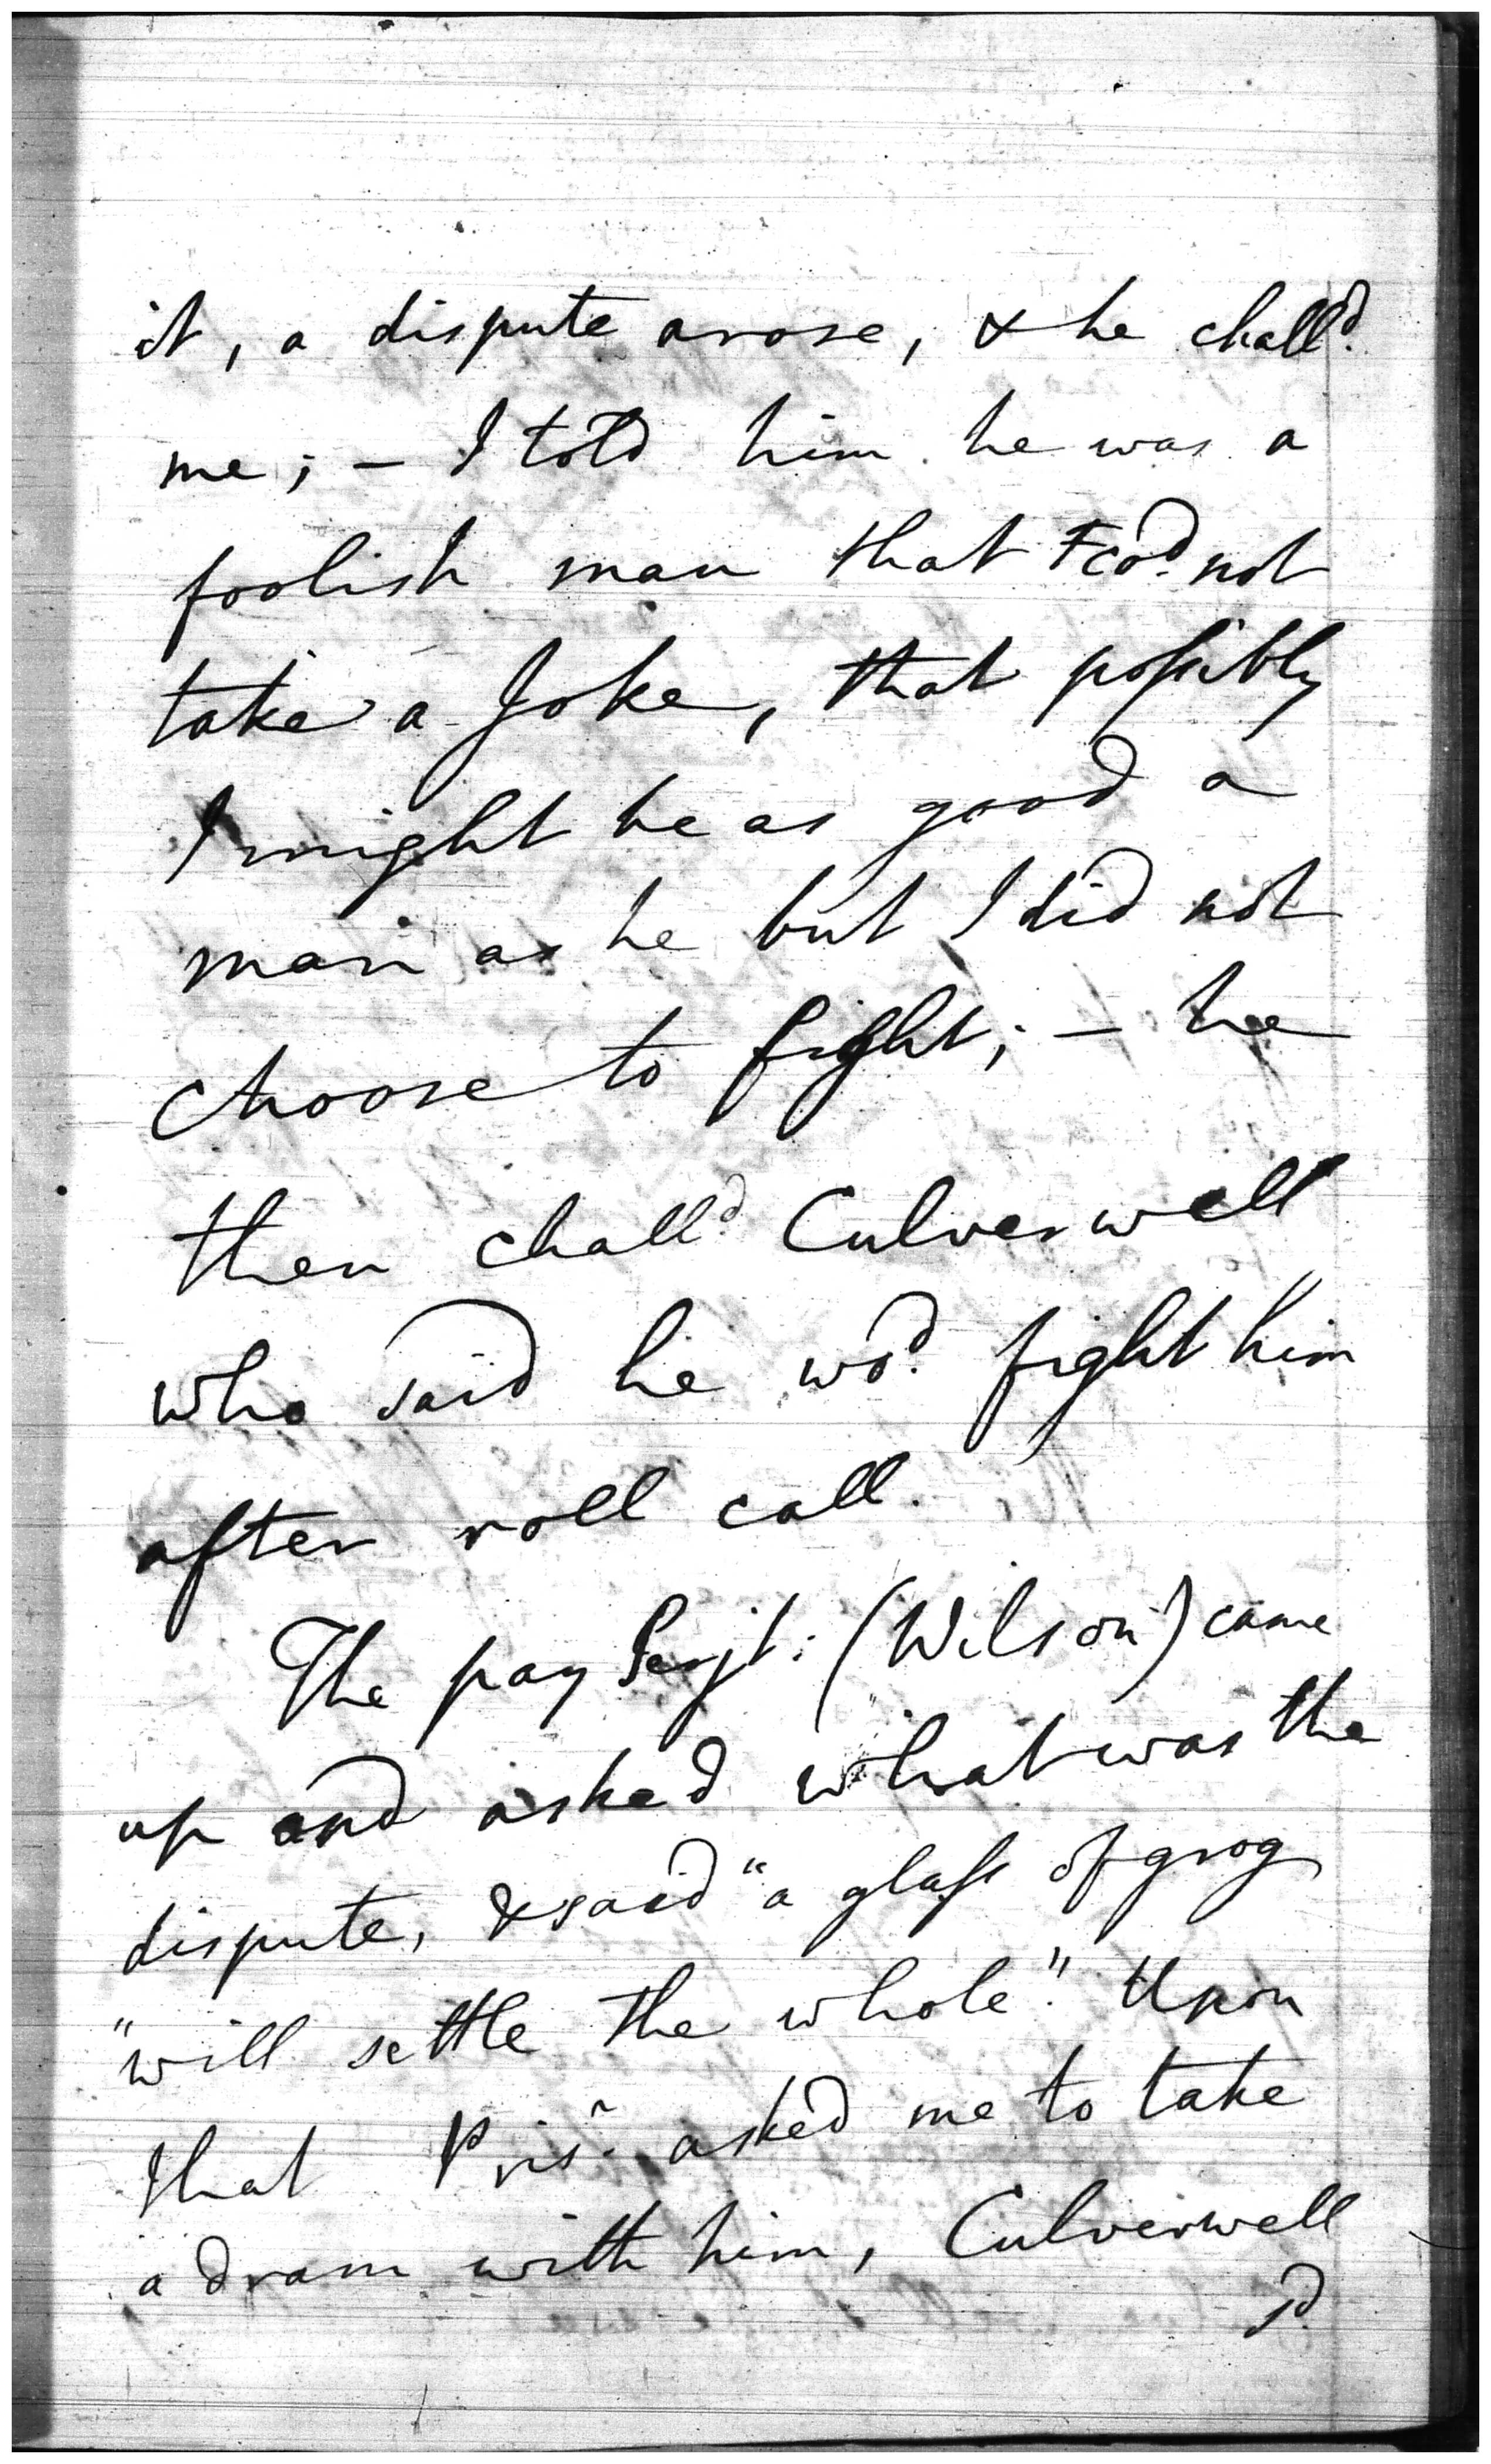 it, a dispute arose, & he chall^d.
me; – I told him he was a
foolish man that co^d. not
take a Joke, that possibly
I might be as good a
man as he but I did not
choose to fight; – he
then chall^d. Culverwell
who said he wo^d. fight him
after roll call.
The pay Serjt: (Wilson) came
up and asked what was the
dispute, & said "a glass of grog
"will settle the whole". Upon
that Pris^r. asked me to take
a dram with him, Culverwell
s^d.